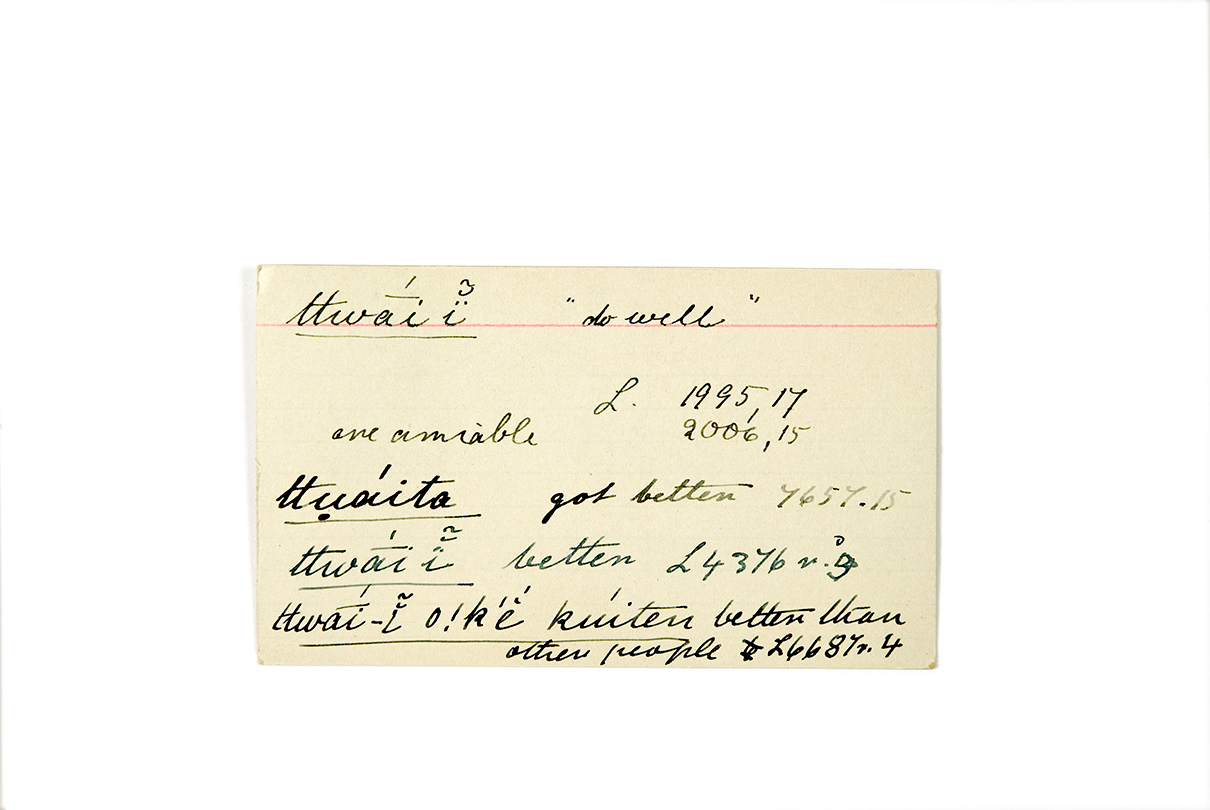 ttwā́i ĩ̈ "do well"
L. 1995,17
are amiable 2006,15
ttu̥áita got better 7657.15
ttwā́i ĩ̈ better L4376 r.
ttwā́i-ĩ̈ o!k'é̆ kúiten better than
other people L6687r.4